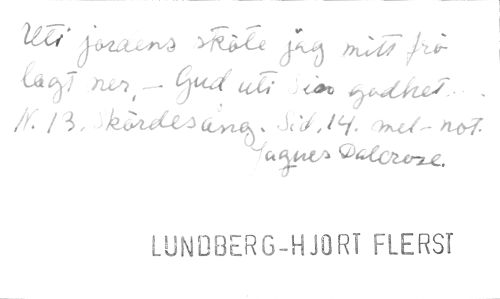 Uti jordens sköte jag mitt frö
lagt ner, — Gud uti sin godhet...
N. 13. Skördesång. Sid. 14. mel-not.
Jaques Dalcroze.
LUNDBERG-HJORT FLERST